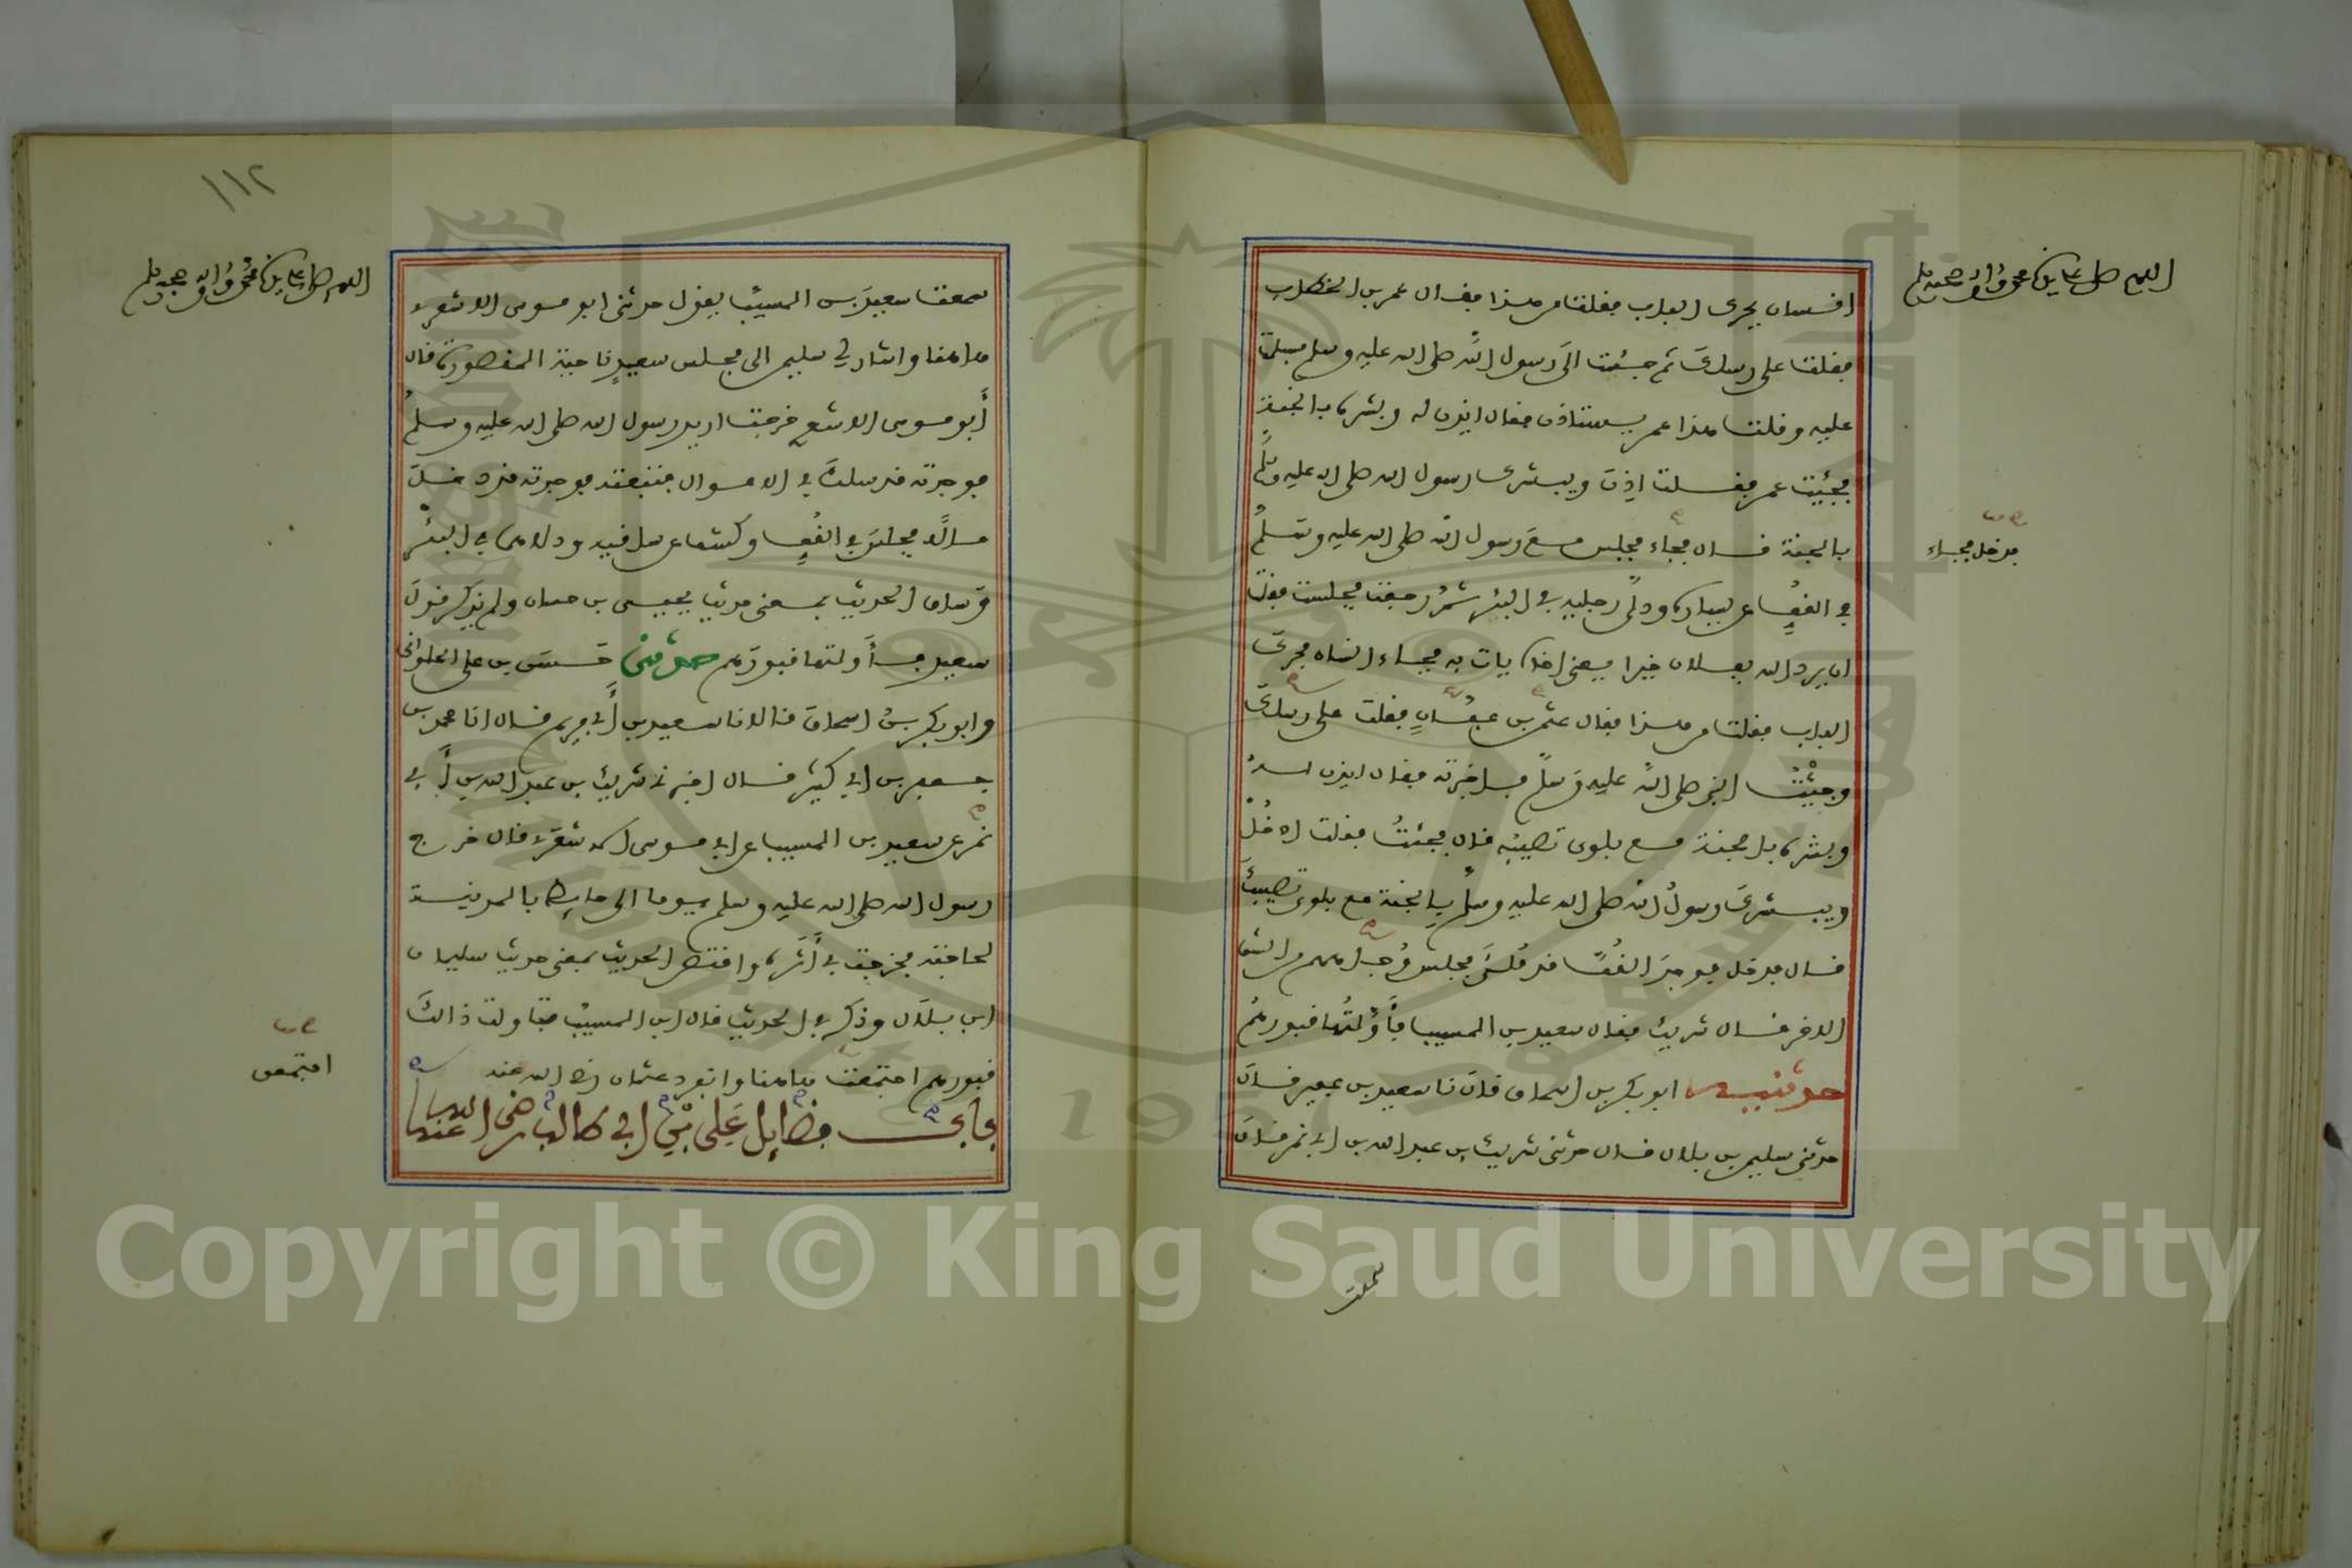 اللهم صل على سيدنا محمد وآله وصحبه وسلم
انسان يحرك الباب فقلت من هذا فقال عمر بن الخطاب
فقلت على رسلك ثم جئت الى رسول الله صلى الله عليه وسلم فسلمت
عليه وقلت هذا عمر يستاذن فقال ايذن له وبشره بالجنة
فجئت عمر فقلت اذن ويبشرك رسول الله صلى الله عليه وسلم
بالجنة قال فجاء فجلس مع رسول الله صلى الله عليه وسلم
فدخل فجاء
في القف عن يساره ودلى رجليه في البئر ثم رجعت فجلست فقلت
ان يرد الله بفلان خيرا يعني اخاه يات به فجاء انسان فحرك
الباب فقلت من هذا فقال عثمن بن عفان فقلت على رسلك
وجئت النبي صلى الله عليه وسلم فاخبرته فقال ايذن له
وبشره بالجنة مع بلوى تصيبه قال فجئت فقلت ادخل
ويبشرك رسول الله صلى الله عليه وسلم بالجنة مع بلوى تصيبك
قال فدخل فوجد القف قد ملئ فجلس وجاههم من الشق
الاخر قال شريك فقال سعيد بن المسيب فاولتها قبورهم
حدثنيه ابو بكر بن اسحاق قال نا سعيد بن عفير قال
حدثني سليمن بن بلال قال حدثني شريك بن عبد الله بن ابي نمر قال
سمعت
١١٢
اللهم صل على سيدنا محمد وآله وصحبه وسلم
سمعت سعيد بن المسيب يقول حدثني ابو موسى الاشعري
هاهنا واشار لي سليمن الى مجلس سعيد ناحية المقصورة قال
أبو موسى الاشعري خرجت اريد رسول الله صلى الله عليه وسلم
فوجدته قد سلك في الاموال فتبعته فوجدته قد دخل
مالا فجلس في القف وكشف عن ساقيه ودلاهما في البئر
وساق الحديث بمعنى حديث يحيى بن حسان ولم يذكر قول
سعيد فأولتها قبورهم حدثني حسن بن علي الحلواني
وابو بكر بن اسحاق قالا نا سعيد بن أبي مريم قال انا محمد بن
جعفر بن ابي كثير قال اخبرني شريك بن عبد الله بن أبي
نمر عن سعيد بن المسيب عن ابي موسى الاشعري قال خرج
رسول الله صلى الله عليه وسلم يوما الى حائط بالمدينة
لحاجته فخرجت في أثره واقتص الحديث بمعنى حديث سليمان
ابن بلال وذكر في الحديث قال ابن المسيب فتاولت ذالك
قبورهم اجتمعت هاهنا وانفرد عثمان رضي الله عنه
اجتمعن
باب فضايل علي بن ابي طالب رضي الله عنه
Copyright © King Saud University
1957